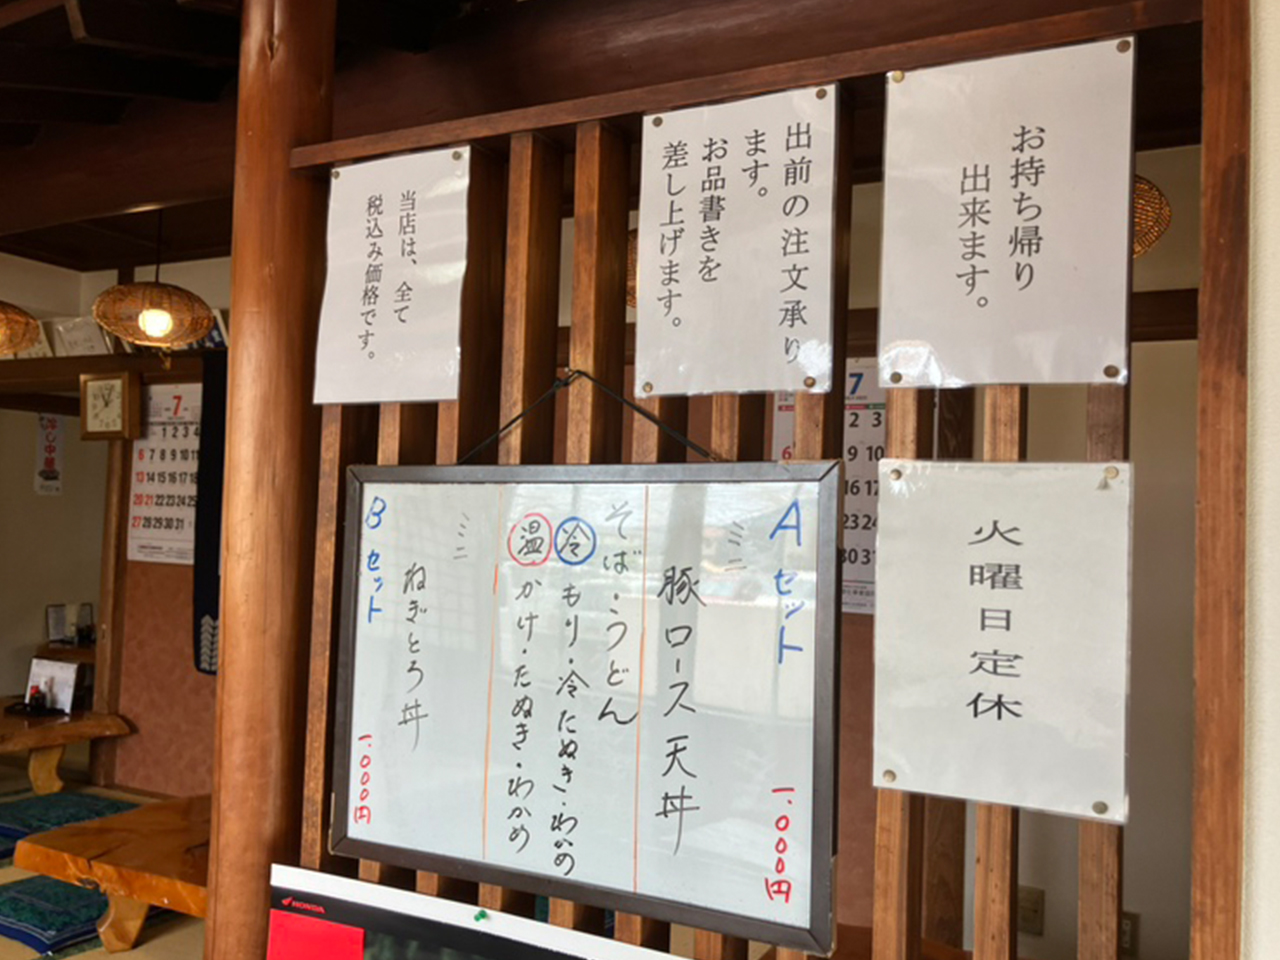 お持ち帰り
出来ます。
出前の注文承り
ます。
お品書きを
差し上げます。
当店は、全て
税込み価格です。
火曜日定休
Aセット
一.000円
ミニ
豚ロース天丼
そば・うどん
冷 もり・冷たぬき・わかめ
温 かけ・たぬき・わかめ
ミニ
ねぎとろ丼
Bセット
一.000円
冷し中華
7
1 2 3 4
6 7 8 9 10 11
13 14 15 16 17 18
20 21 22 23 24 25
27 28 29 30 31
7
2 3
6 9 10
16 17
23 24
30 31
HONDA